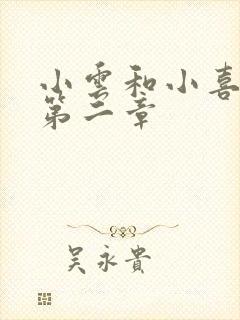 小雲和小喜
第二章
吴永貴